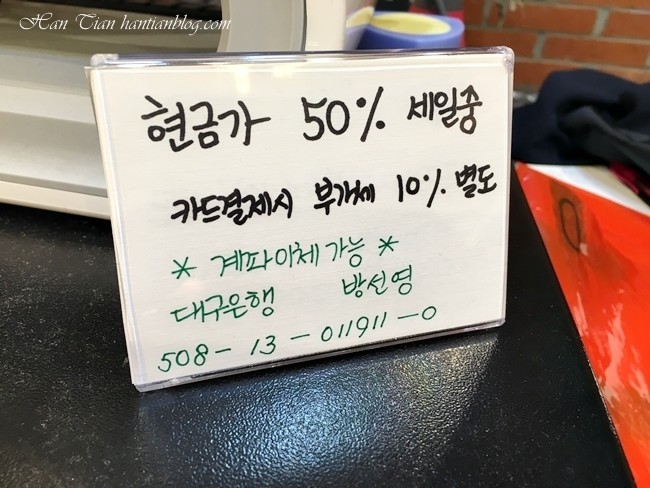 Han Tian hantianblog.com
현금가 50% 세일중
카드결제시 부가세 10% 별도
* 계좌이체 가능 *
대구은행 방선영
508-13-011911-0